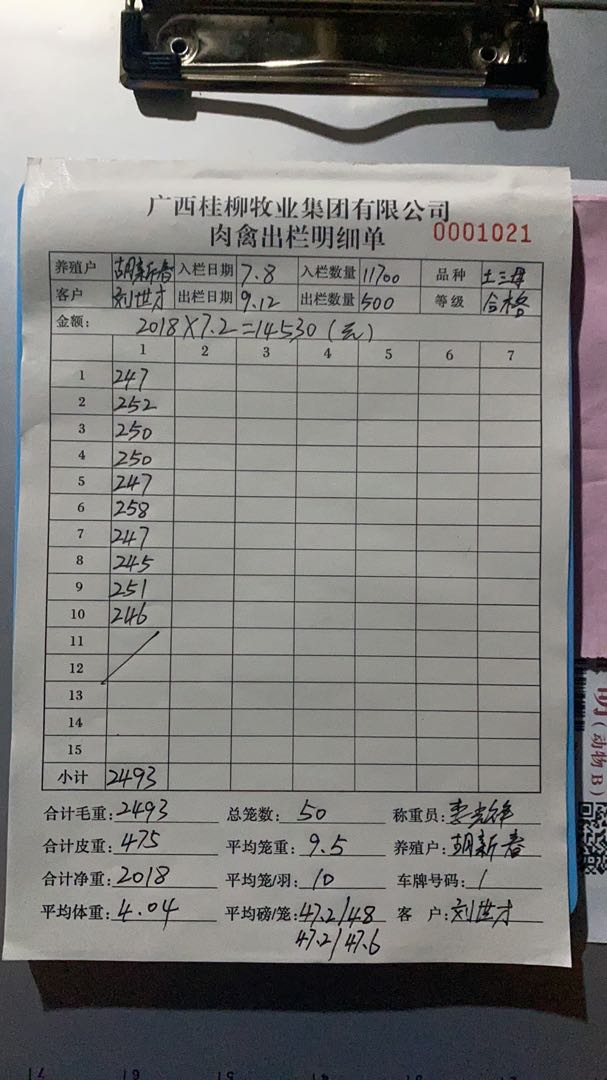 广西桂柳牧业集团有限公司
肉禽出栏明细单 0001021
养殖户 胡新春 入栏日期 7.8 入栏数量 11700 品种 土三母
客户 刘世才 出栏日期 9.12 出栏数量 500 等级 合格
金额: 2018×7.2=14530(元)
1 2 3 4 5 6 7
1 247
2 252
3 250
4 250
5 247
6 258
7 247
8 245
9 251
10 246
11
12
13
14
15
小计 2493
合计毛重: 2493 总笼数: 50 称重员:
合计皮重: 475 平均笼重: 9.5 养殖户: 胡新春
合计净重: 2018 平均笼/羽: 10 车牌号码: /
平均体重: 4.04 平均磅/笼: 47.2/48 客 户: 刘世才
47.2/47.6
(动物B)